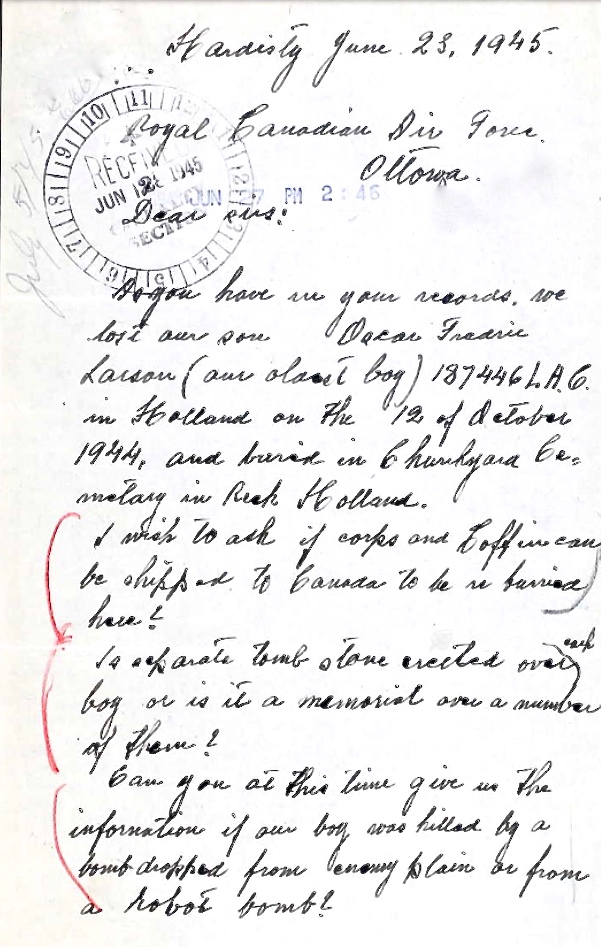 Hardisty June 23, 1945.
Royal Canadian Air Force.
Ottowa.
11 10 9 8 7 6 5 4 3 2
RECEIVED
JUN 1945
JUN 27 PM 2:46
SECTION
Dear sirs:
As you have in your records, we
lost our son Oscar Fredric
Larson (our oldest boy) 187446 L.A.C.
in Holland on the 12 of October
1944, and buried in Churchyard Ce-
metary in Reek Holland.
I wish to ask if corps and Coffin can
be shipped to Canada to be re burried
here?
Is separate tomb stone erected over each
boy or is it a memorial over a number
of them?
Can you at this time give us the
information if our boy was killed by a
bomb dropped from enemy plain or from
a robot bomb?